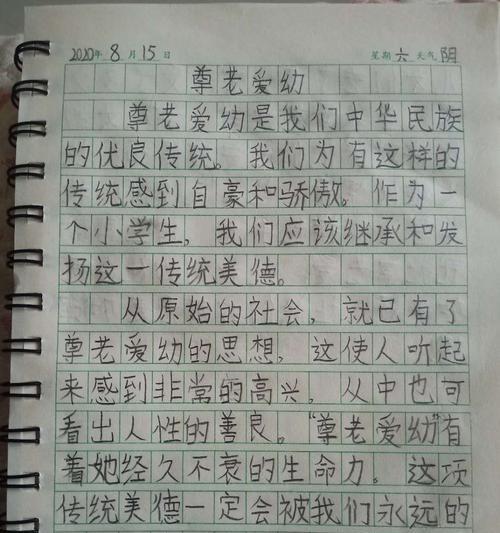 2020年 8月 15日 星期 六 天气 阴
尊老爱幼
尊老爱幼是我们中华民族
的优良传统。我们为有这样的
传统感到自豪和骄傲。作为一
个小学生，我们应该继承和发
扬这一传统美德。
从原始的社会，就已有了
尊老爱幼的思想，这使人听起
来感到非常的高兴，从中也可
看出人性的善良。“尊老爱幼”有
着她经久不衰的生命力。这项
传统美德一定会被我们永远的